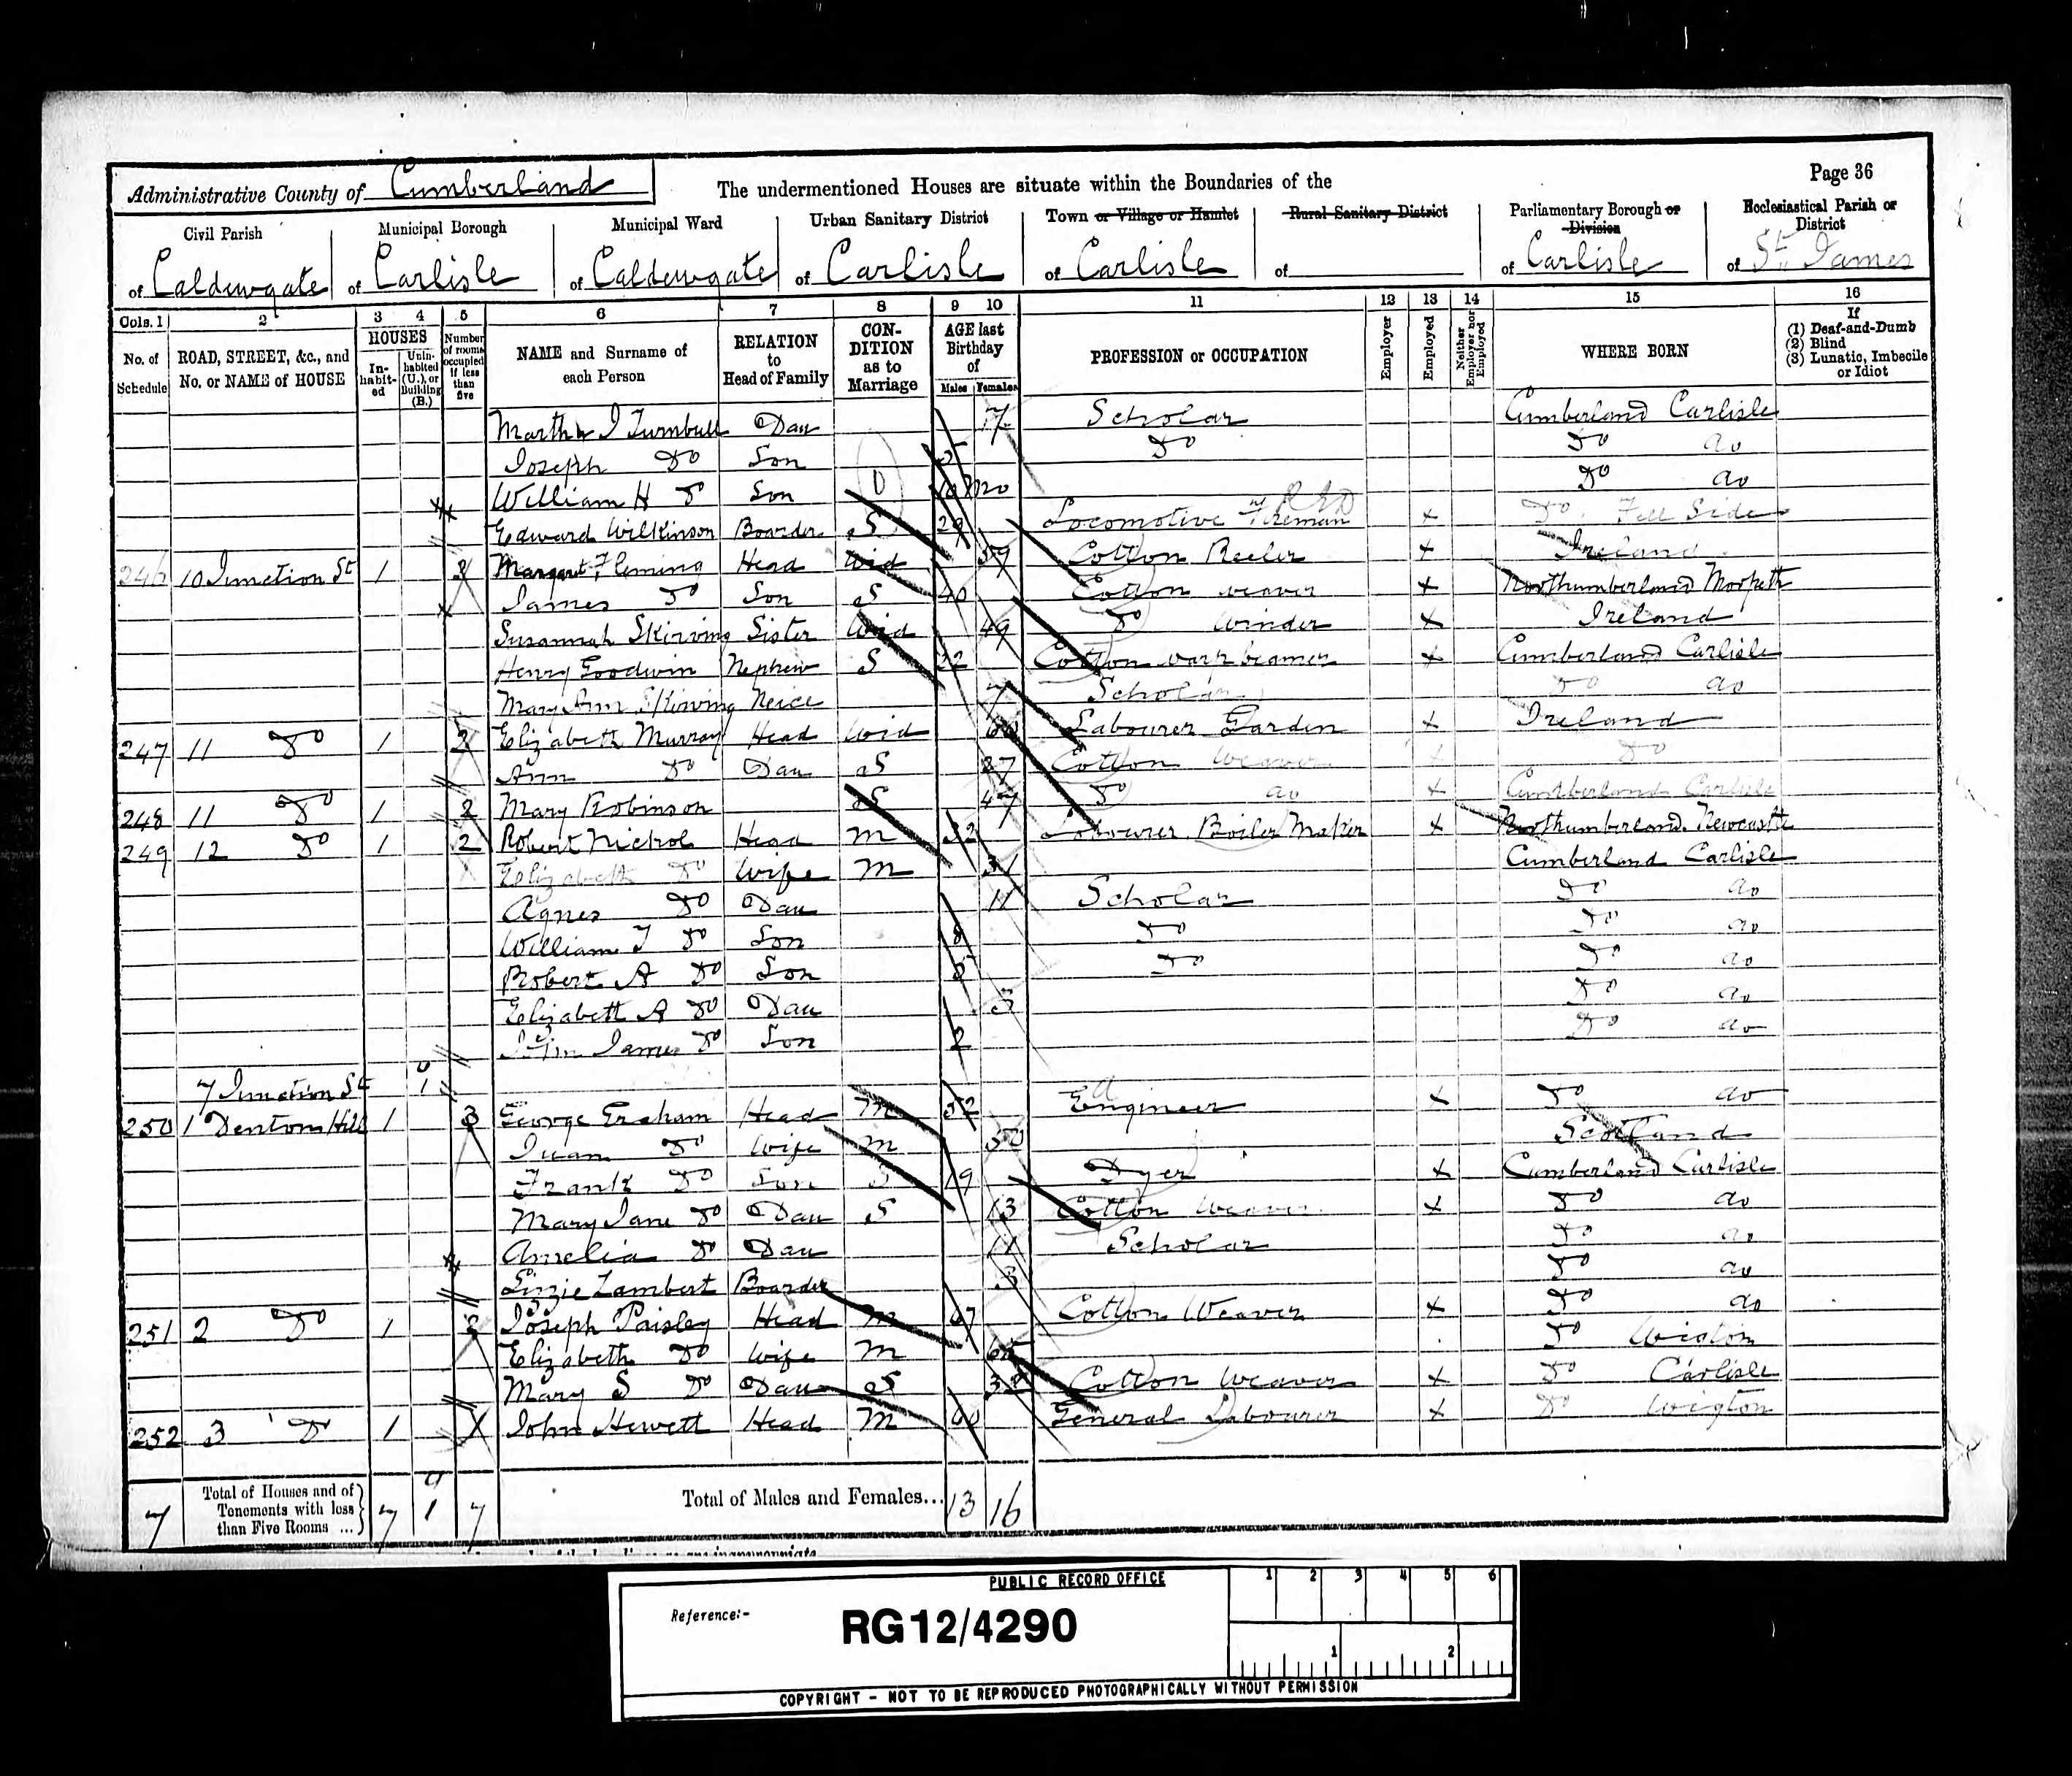 Administrative County of Cumberland
The undermentioned Houses are situate within the Boundaries of the
Page 36
Civil Parish of Caldewgate
Municipal Borough of Carlisle
Municipal Ward of Caldewgate
Urban Sanitary District of Carlisle
Town or Village or Hamlet of Carlisle
Rural Sanitary District of
Parliamentary Borough or Division of Carlisle
Ecclesiastical Parish or District of St. James
Cols. 1 2 3 4 5 6 7 8 9 10 11 12 13 14 15 16
No. of Schedule
ROAD, STREET, &c., and No. or NAME of HOUSE
HOUSES
Inhabited
Uninhabited (U.), or Building (B.)
Number of rooms occupied if less than five
NAME and Surname of each Person
RELATION to Head of Family
CONDITION as to Marriage
AGE last Birthday of
Males Females
PROFESSION or OCCUPATION
Employer
Employed
Neither Employer nor Employed
WHERE BORN
If (1) Deaf-and-Dumb (2) Blind (3) Lunatic, Imbecile or Idiot
Martha I Turnbull Dau 7 Scholar Cumberland Carlisle
Joseph Do Son 5 Do Do do
William H Do Son Do do
Edward Wilkinson Boarder S 29 Locomotive Fireman x Do Fell Side
246 10 Junction St 1 3 Margaret Fleming Head Wid 59 Cotton Reeler x Ireland
James Do Son S 40 Cotton weaver x Northumberland Morpeth
Susannah Skirving Sister Wid 49 Do Winder x Ireland
Henry Goodwin Nephew S 22 Cotton warp beamer x Cumberland Carlisle
Mary Ann Skirving Neice 7 Scholar Do do
247 11 Do 1 2 Elizabeth Murray Head Wid Labourer Garden x Ireland
Ann Do Dau S 27 Cotton Weaver x Do
248 11 Do 1 2 Mary Robinson S 47 Do do x Cumberland Carlisle
249 12 Do 1 2 Robert Nichol Head M 32 Labourer Boiler Maker x Northumberland Newcastle
Elizabeth Do Wife M 31 Cumberland Carlisle
Agnes Do Dau 11 Scholar Do do
William J Do Son 8 Do Do do
Robert A Do Son 5 Do Do do
Elizabeth A Do Dau 3 Do do
John James Do Son 2 Do do
7 Junction St 1
250 1 Denton Hill 1 3 George Graham Head M 52 Engineer x Do do
Do Wife M 50 Scotland
Frank Do Son S 19 Dyer x Cumberland Carlisle
Mary Jane Do Dau S 13 Cotton Weaver x Do do
Amelia Do Dau 11 Scholar Do do
Lizzie Lambert Boarder 3 Do do
251 2 Do 1 3 Joseph Paisley Head M 67 Cotton Weaver x Do do
Elizabeth Do Wife M Do Wigton
Mary S Do Dau S 32 Cotton Weaver x Do Carlisle
252 3 Do 1 John Hewett Head M 60 General Labourer x Do Wigton
7 Total of Houses and of Tenements with less than Five Rooms ... 7 1 7
Total of Males and Females... 13 16
PUBLIC RECORD OFFICE
1 2 3 4 5 6
Reference:-
RG12/4290
1 2
COPYRIGHT - NOT TO BE REPRODUCED PHOTOGRAPHICALLY WITHOUT PERMISSION